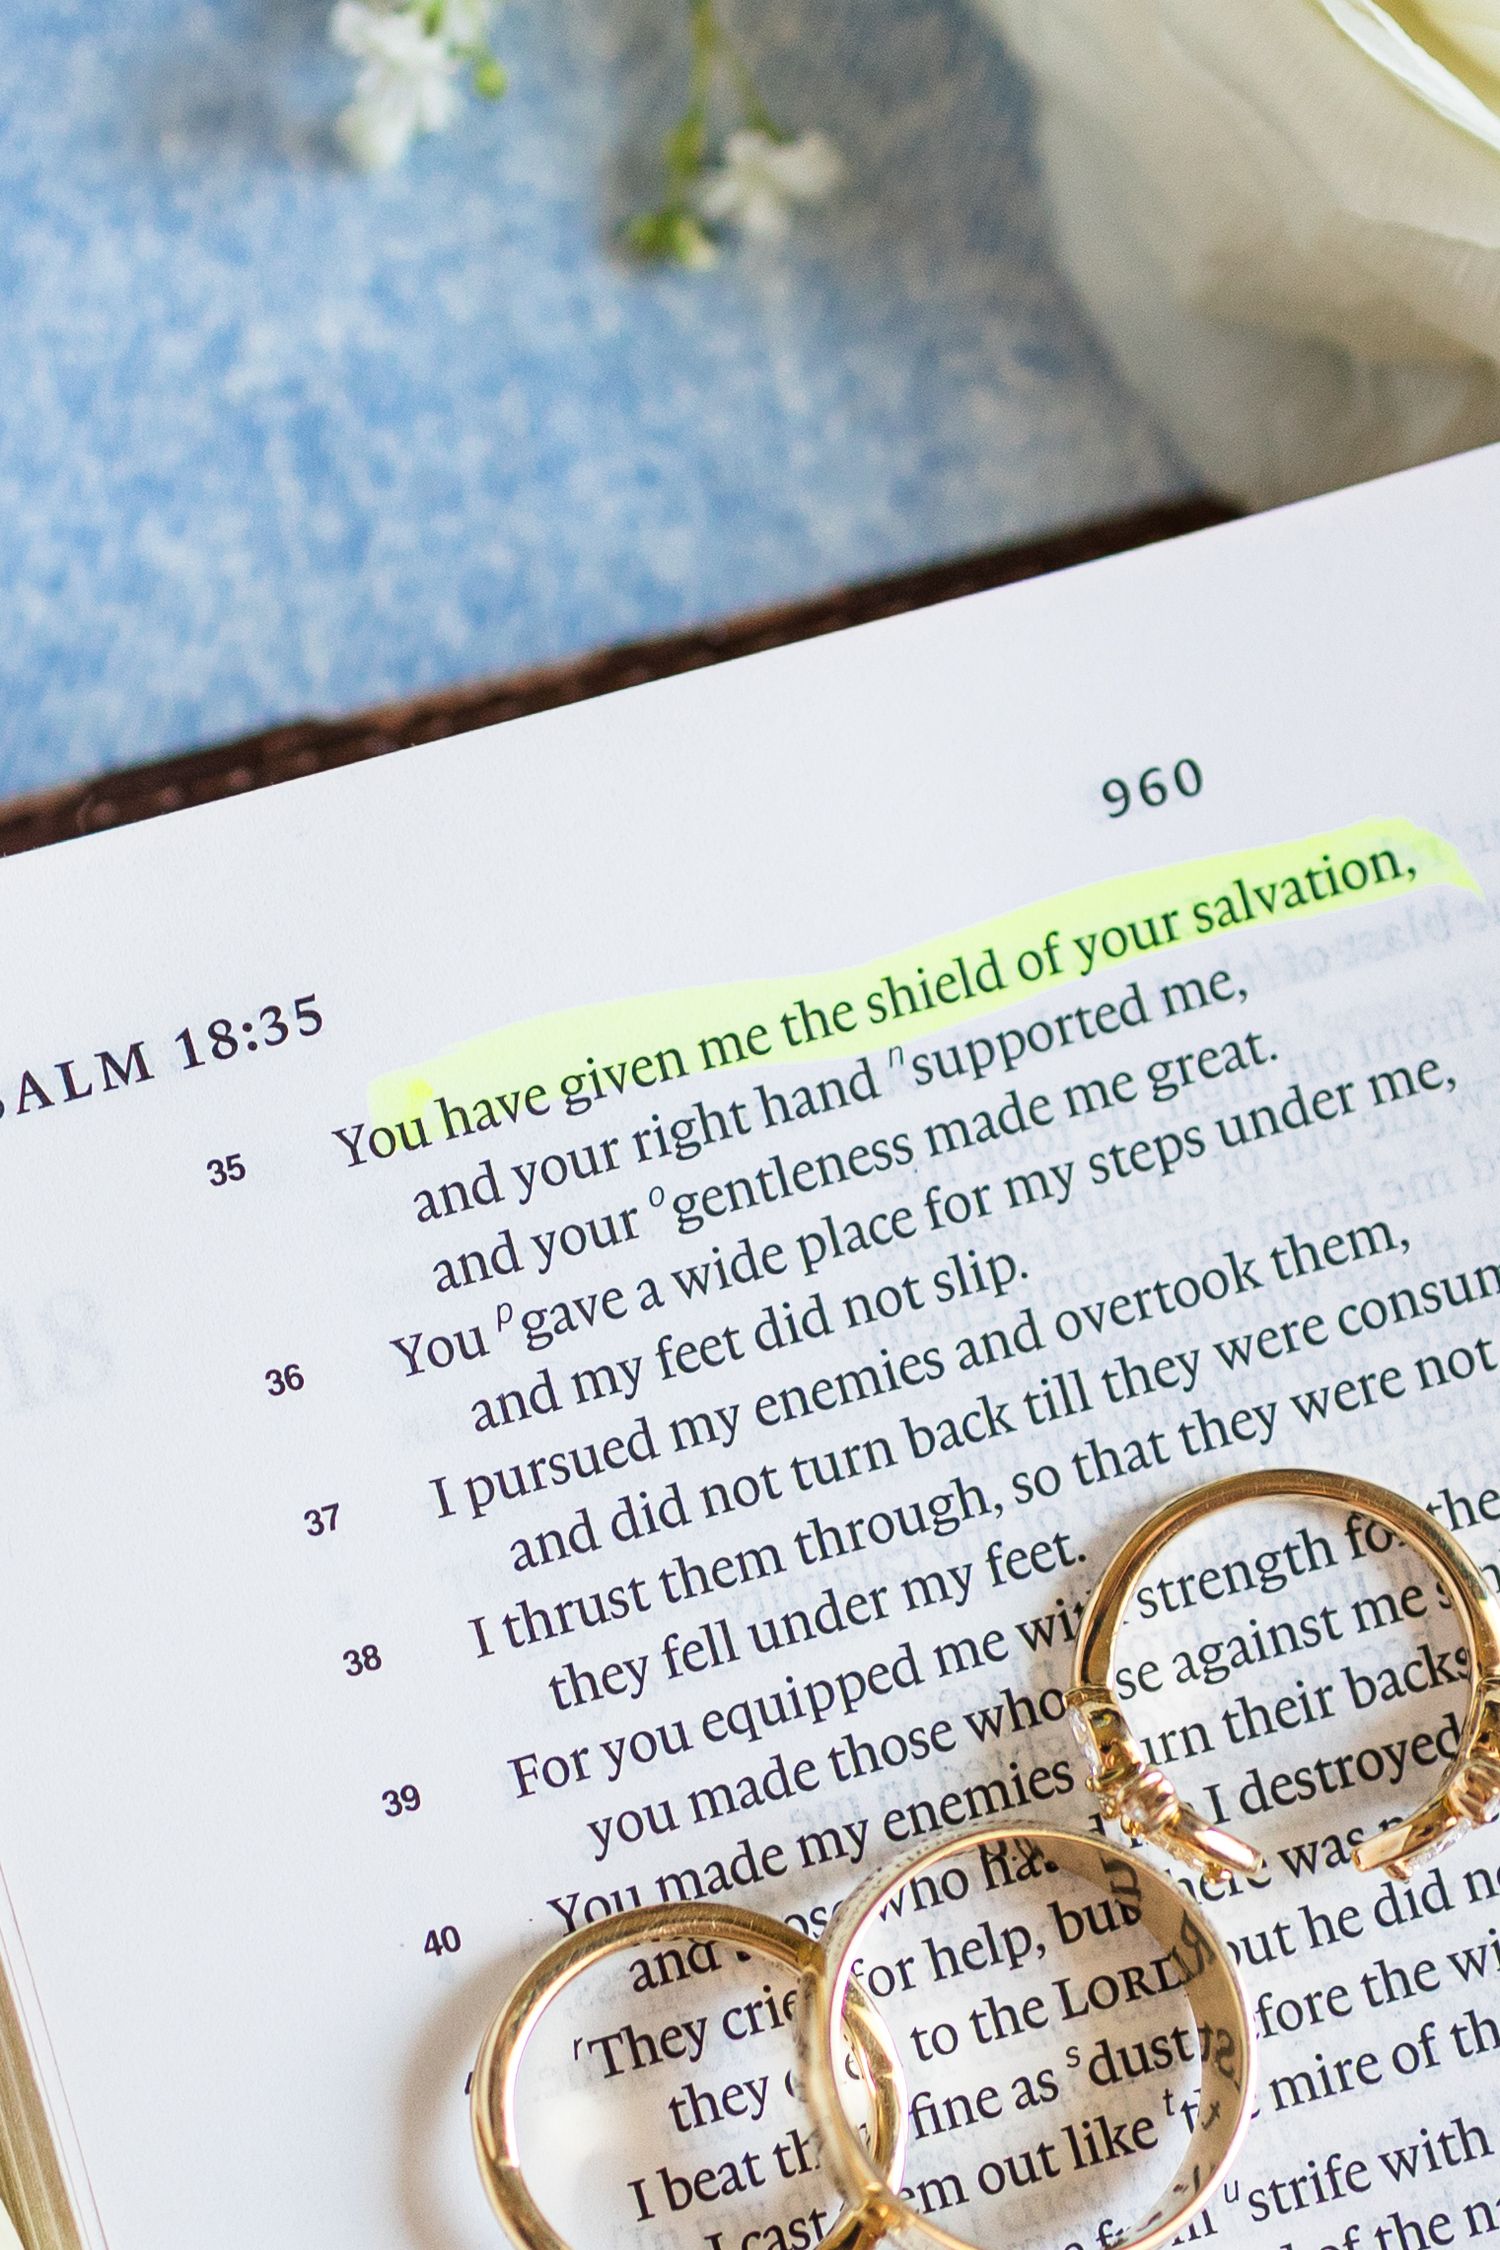 960
ALM 18:35
35 You have given me the shield of your salvation,
and your right hand n supported me,
and your o gentleness made me great.
36 You p gave a wide place for my steps under me,
and my feet did not slip.
37 I pursued my enemies and overtook them,
and did not turn back till they were consum
38 I thrust them through, so that they were not
they fell under my feet.
39 For you equipped me strength the
you made those who against me
40 You made my enemies their backs
and who I destroyed
r They for help, but there was
they to the LORD but he did
I beat fine as s dust the
I cast out like t mire of
u strife with
of the